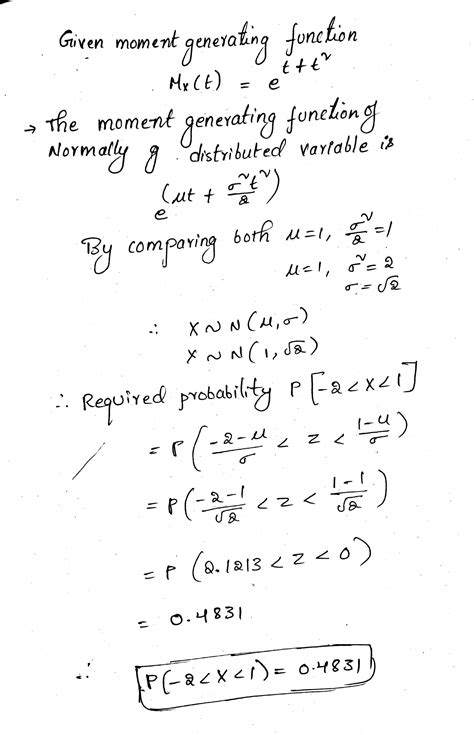 Given moment generating function
Mx(t) = e^{t+t^2}
→ The moment generating function of
Normally g distributed variable is
e^{(μt + σ^2t^2/2)}
By comparing both μ=1, σ^2/2 =1
μ=1, σ^2 = 2
σ = √2
∴ X ~ N(μ,σ)
X ~ N(1,√2)
∴ Required probability P[-2<X<1]
= P((-2-μ)/σ < Z < (1-μ)/σ)
= P((-2-1)/√2 < Z < (1-1)/√2)
= P(2.1213 < Z < 0)
= 0.4831
∴ P(-2<X<1) = 0.4831